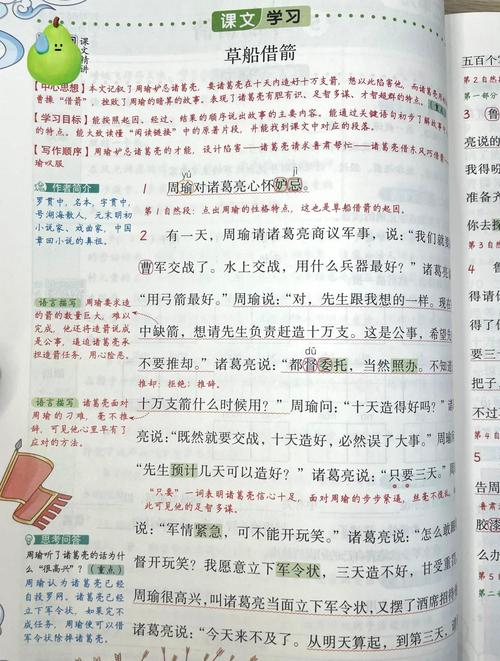 课文学习
草船借箭
课文精讲
【中心思想】本文记叙了周瑜妒忌诸葛亮,要诸葛亮在十天内造好十万支箭,想以此陷害他,而诸葛亮
曹操“借箭”,挫败了周瑜的暗算的故事。表现了诸葛亮有胆有识、足智多谋、才智超群的特点。(重点)
【学习目标】能按照起因、经过、结果的顺序说出故事的主要内容。能通过关键语句初步了解故事中
的特点。能大致读懂“阅读链接”中的原著片段,并能找到课文中对应的段落。
【写作顺序】周瑜妒忌诸葛亮的才能,设计陷害——诸葛亮请求鲁肃帮忙——诸葛亮借东风巧借
瑜叹服
作者简介
罗贯中,名本,字贯中,
号湖海散人,元末明初
小说家、戏曲家,中国
章回小说的鼻祖。
yú jì
1 周瑜对诸葛亮心怀妒忌。
第1自然段:点出周瑜的性格特点,这也是草船借箭的起因。
2 有一天,周瑜请诸葛亮商议军事,说:“我们就要
曹军交战了。水上交战,用什么兵器最好?”诸葛亮
“用弓箭最好。”周瑜说:“对,先生跟我想的一样。现在
中缺箭,想请先生负责赶造十万支。这是公事,希望先
不要推却。”诸葛亮说:“都督委托,当然照办。不知道
dū
推却:拒绝;推辞。
十万支箭什么时候用?”周瑜问:“十天造得好吗?”
亮说:“既然就要交战,十天造好,必然误了大事。”周瑜
“先生预计几天可以造好?”诸葛亮说:“只要三天。”
“只要”一词表明诸葛亮信心十足,面对周瑜的步步紧逼,丝毫不慌。
此可见他的足智多谋。
说:“军情紧急,可不能开玩笑。”诸葛亮说:“怎么敢跟
督开玩笑?我愿意立下军令状,三天造不好,甘受重罚
周瑜很高兴,叫诸葛亮当面立下军令状,又摆了酒席招待
诸葛亮说:“今天来不及了。从明天算起,到第三天,请
语言描写 周瑜要求造
的箭的数量巨大,难以
完成,他还将造箭说成
是公事,逼迫诸葛亮承
担造箭任务,用心险恶。
语言描写 诸葛亮面对
周瑜的刁难,毫不推
辞,可见他心里早有了
应对的方法。
思考问答
周瑜听了诸葛亮的话为什
么“很高兴”?(重点)
周瑜认为诸葛亮已经
自投罗网。诸葛亮已经
立下军令状,如果完不
成任务,周瑜便可以借
军令状除掉诸葛亮。
五百个
第2自然段
3
亮说的
第3自然
4
第4自然
5
告诉周
鲁肃真
胶漆